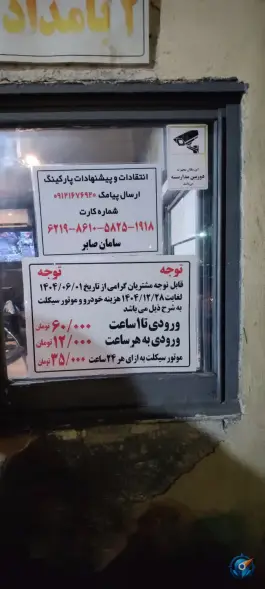 ۲ بامداد
این مکان مجهز به
دوربین مداربسته
می‌باشد
انتقادات و پیشنهادات پارکینگ
ارسال پیامک ۰۹۱۲۱۶۷۶۹۲۰
شماره کارت
۶۲۱۹-۸۶۱۰-۵۸۲۵-۱۹۱۸
سامان صابر
توجه توجه
قابل توجه مشتریان گرامی از تاریخ ۱۴۰۴/۰۶/۰۱
لغایت ۱۴۰۴/۱۲/۲۸ هزینه خودرو و موتور سیکلت
به شرح ذیل می باشد
ورودی تا ۱ ساعت ۶۰/۰۰۰ تومان
ورودی به هر ساعت ۱۲/۰۰۰ تومان
موتور سیکلت به ازای هر ۲۴ ساعت ۳۵/۰۰۰ تومان